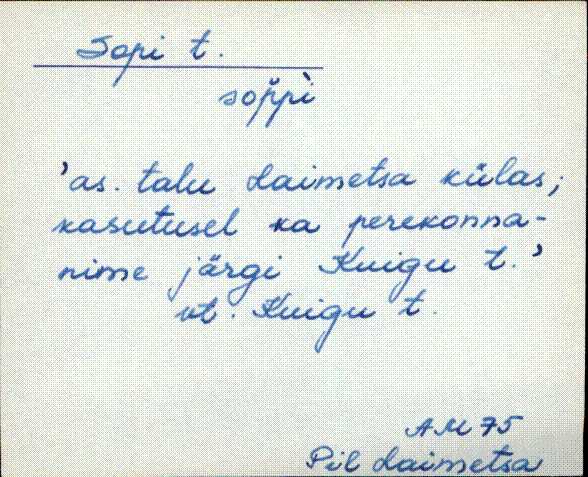 Sopi t.
sop̆pì
'as. talu Laimetsa külas;
kasutusel ka perekonna-
nime järgi Kuigu t.'
vt. Kuigu t.
AM 75
Pil Laimetsa